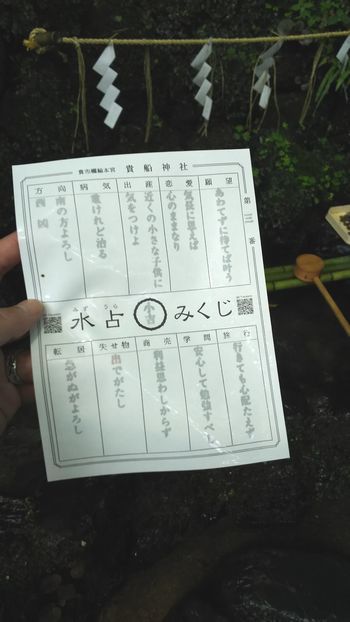 貴船神社
第三番
願望
あわてずに待てば叶う
恋愛
気長に思えば
心のままなり
出産
近くの小さな子供に
気をつけよ
病気
重けれど治る
方向
南の方よろし
西 凶
水占みくじ
みず うら
小吉
旅行
行きても心配たえず
学問
安心して勉強すべし
商売
利益思わしからず
失せ物
出でがたし
転居
急がぬがよろし